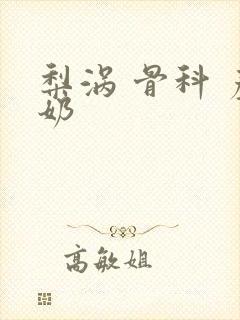 梨涡 骨科 产
奶
高敏姐